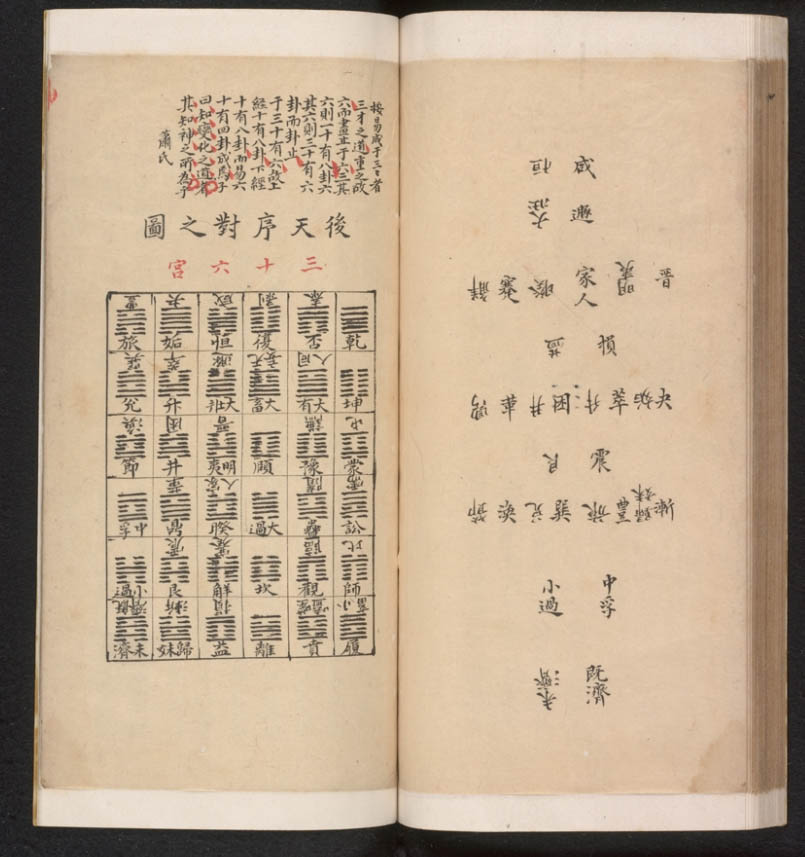 咸 恒
遯 大壯
晉 明夷 家人 睽 蹇 解
損 益
夬 姤 萃 升 困 井 革 鼎
震 艮
漸 歸妹 豐 旅 巽 兌 渙 節
中孚 小過
既濟 未濟
按易成于三三者
三才之道重之故
六而畫止于六三其
六則一十有八卦六
其六則三十有六
卦而卦止
于三十有六故上
經十有八卦下經
十有八卦而易六
十有四卦成焉子
曰知變化之道者
其知神之所為乎
蕭氏
後天序對之圖
三十六宮
泰 剝 咸 夬 豐
乾 否 復 恒 姤 旅
同人 无妄 遯 萃 巽
坤 大有 大畜 大壯 升 兌
屯 謙 晉 困 渙
蒙 豫 頤 明夷 井 節
需 隨 家人 革
訟 蠱 大過 睽 鼎 中孚
比 臨 蹇 震
師 觀 坎 解 艮 小過
小畜 噬嗑 損 漸 既濟
履 賁 離 益 歸妹 未濟